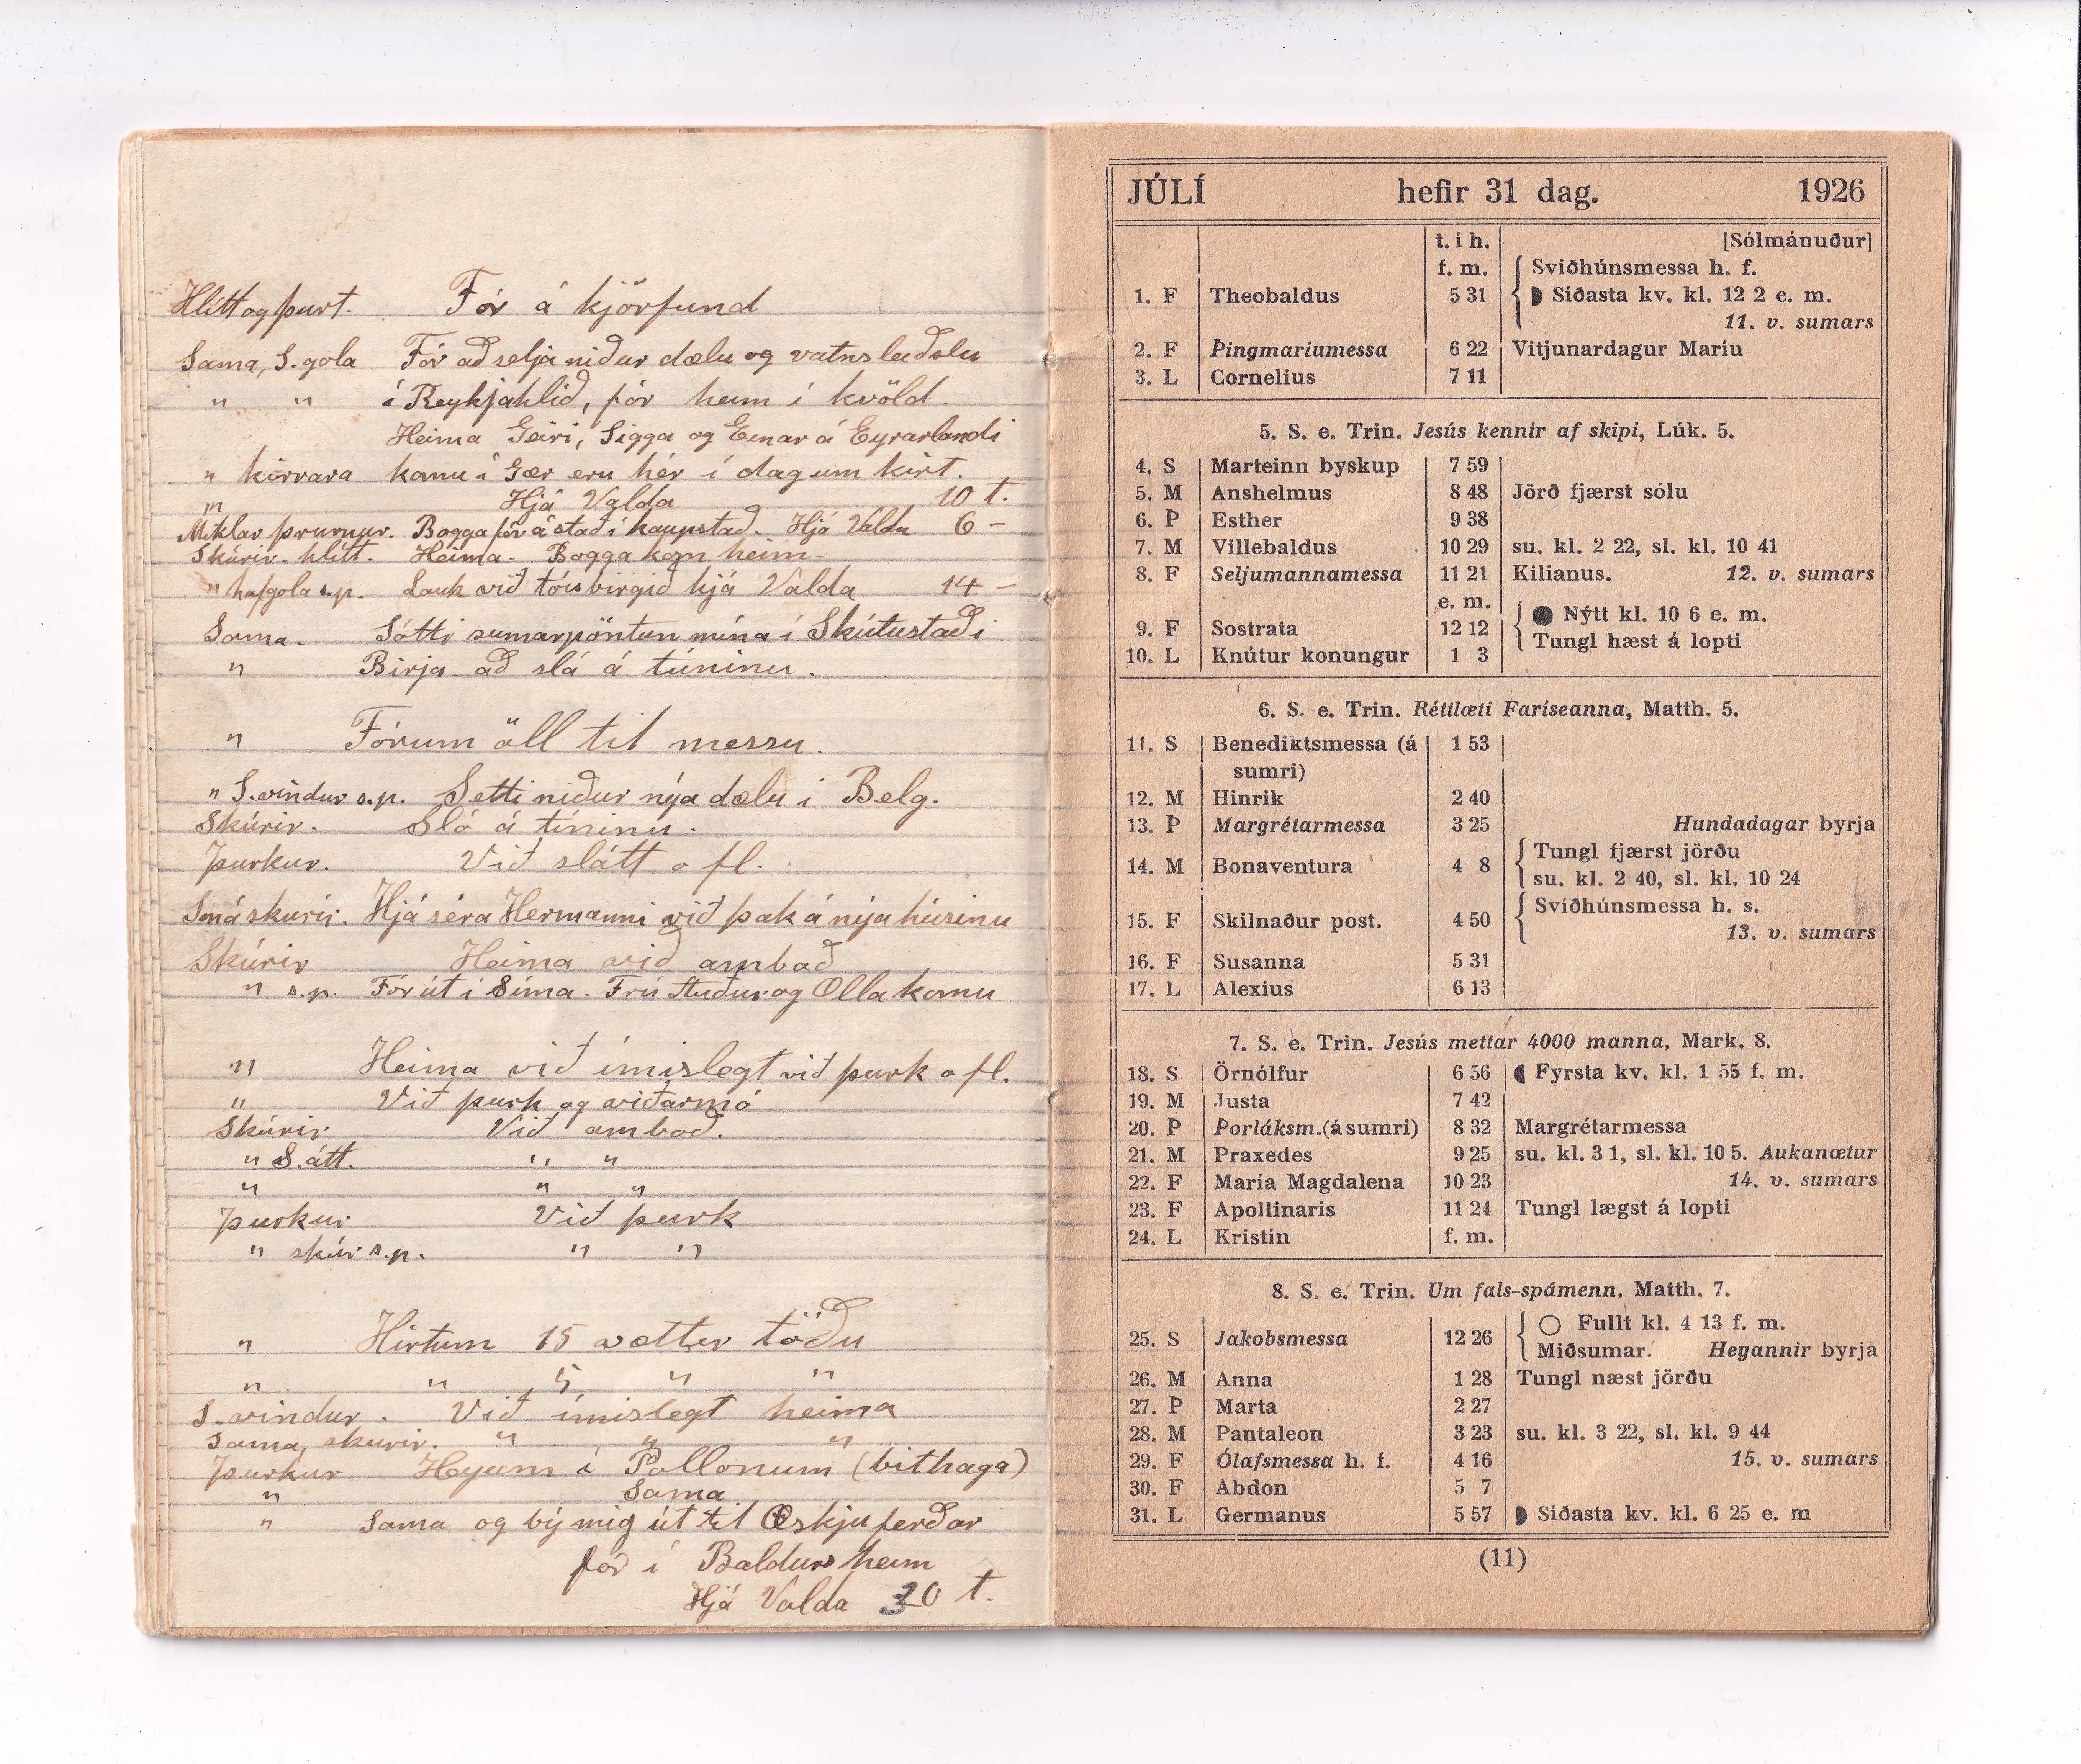 Hlítt og þurt. Fór á kjörfund
Sama, S. gola Fór að setja niður dælu og vatnsleiðslu
" " í Reykjahlíð, fór heim í kvöld.
Heima Geiri, Sigga og Einar á Eyrarlandi
" kirrara komu í gær eru hér í dag um kirt.
" Hjá Valda 10 t.
Miklar þrumur. Bogga fór á stað í kaupstað. Hjá Valda 6 –
Skúrir. hlítt. Heima. Bogga kom heim.
" hafgola s.p. Lauk við tóvbirgið hjá Valda 14 –
Sama. Sótti sumarpöntun mína í Skútustaði
" Birja að slá á túninu.
" Fórum öll til messu.
" S.vindur s.p. Setti niður nýa dælu í Belg.
Skúrir. Sló á túninu.
Þurkur. Við slátt o fl.
Smáskúrir. Hjá séra Hermanni við þak á nýa húsinu
Skúrir Heima við amboð
" s.p. Fór út í Síma. Frú Auður og Olla komu
" Heima við ímislegt við þurk o fl.
" Við þurk og viðarmó
Skúrir Við amboð.
" S. átt. " "
" " "
Þurkur Við þurk
" skúr s.p. " "
" Hirtum 15 vættir töðu
" " 5 " "
S. vindur. Við ímislegt heima
Sama, skúrir. " " "
Þurkur Heyum í Pollonum (bithaga)
" Sama
" Sama og bý mig út til Öskjuferðar
fór í Baldursheim
Hjá Valda 30 t.
JÚLÍ hefir 31 dag. 1926
t. í h. [Sólmánuður]
f. m. Sviðhúnsmessa h. f.
1. F Theobaldus 5 31 Síðasta kv. kl. 12 2 e. m.
11. v. sumars
2. F Þingmaríumessa 6 22 Vitjunardagur Maríu
3. L Cornelius 7 11
5. S. e. Trin. Jesús kennir af skipi, Lúk. 5.
4. S Marteinn byskup 7 59
5. M Anshelmus 8 48 Jörð fjærst sólu
6. Þ Esther 9 38
7. M Villebaldus 10 29 su. kl. 2 22, sl. kl. 10 41
8. F Seljumannamessa 11 21 Kilianus. 12. v. sumars
e. m. Nýtt kl. 10 6 e. m.
9. F Sostrata 12 12 Tungl hæst á lopti
10. L Knútur konungur 1 3
6. S. e. Trin. Réttlæti Faríseanna, Matth. 5.
11. S Benediktsmessa (á 1 53
sumri)
12. M Hinrik 2 40
13. Þ Margrétarmessa 3 25 Hundadagar byrja
Tungl fjærst jörðu
14. M Bonaventura 4 8
su. kl. 2 40, sl. kl. 10 24
Svíðhúnsmessa h. s.
15. F Skilnaður post. 4 50
13. v. sumars
16. F Susanna 5 31
17. L Alexius 6 13
7. S. e. Trin. Jesús mettar 4000 manna, Mark. 8.
18. S Örnólfur 6 56 Fyrsta kv. kl. 1 55 f. m.
19. M Justa 7 42
20. Þ Þorláksm.(á sumri) 8 32 Margrétarmessa
21. M Praxedes 9 25 su. kl. 3 1, sl. kl. 10 5. Aukanætur
22. F María Magdalena 10 23 14. v. sumars
23. F Apollinaris 11 24 Tungl lægst á lopti
24. L Kristín f. m.
8. S. e. Trin. Um fals-spámenn, Matth. 7.
Fullt kl. 4 13 f. m.
25. S Jakobsmessa 12 26
Miðsumar. Heyannir byrja
26. M Anna 1 28 Tungl næst jörðu
27. Þ Marta 2 27
28. M Pantaleon 3 23 su. kl. 3 22, sl. kl. 9 44
29. F Ólafsmessa h. f. 4 16 15. v. sumars
30. F Abdon 5 7
31. L Germanus 5 57 Síðasta kv. kl. 6 25 e. m
(11)